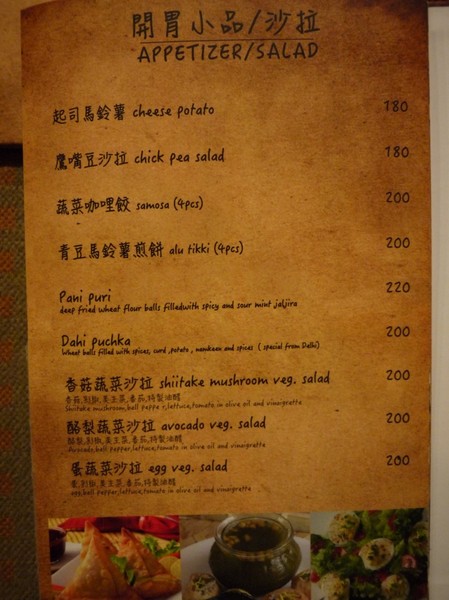 開胃小品/沙拉
APPETIZER/SALAD
起司馬鈴薯 cheese potato 180
鷹嘴豆沙拉 chick pea salad 180
蔬菜咖哩餃 samosa (4pcs) 200
青豆馬鈴薯煎餅 alu tikki (4pcs) 200
Pani puri 220
deep fried wheat flour balls filledwith spicy and sour mint ,jaljira
Dahi puchka 200
Wheat balls filled with spices, curd ,potato , namkeen and spices ( special from Delhi)
香菇蔬菜沙拉 shiitake mushroom veg. salad 200
香菇,彩椒,美生菜,番茄,特製油醋
Shiitake mushroom,bell peppe r,lettuce,tomato in olive oil and vinaigrette
酪梨蔬菜沙拉 avocado veg. salad 200
酪梨,彩椒,美生菜,番茄,特製油醋
Avocado,bell pepper,lettuce,tomato in olive oil and vinaigrette
蛋蔬菜沙拉 egg veg. salad 200
蛋,彩椒,美生菜,番茄,特製油醋
egg,bell pepper,lettuce,tomato in olive oil and vinaigrette